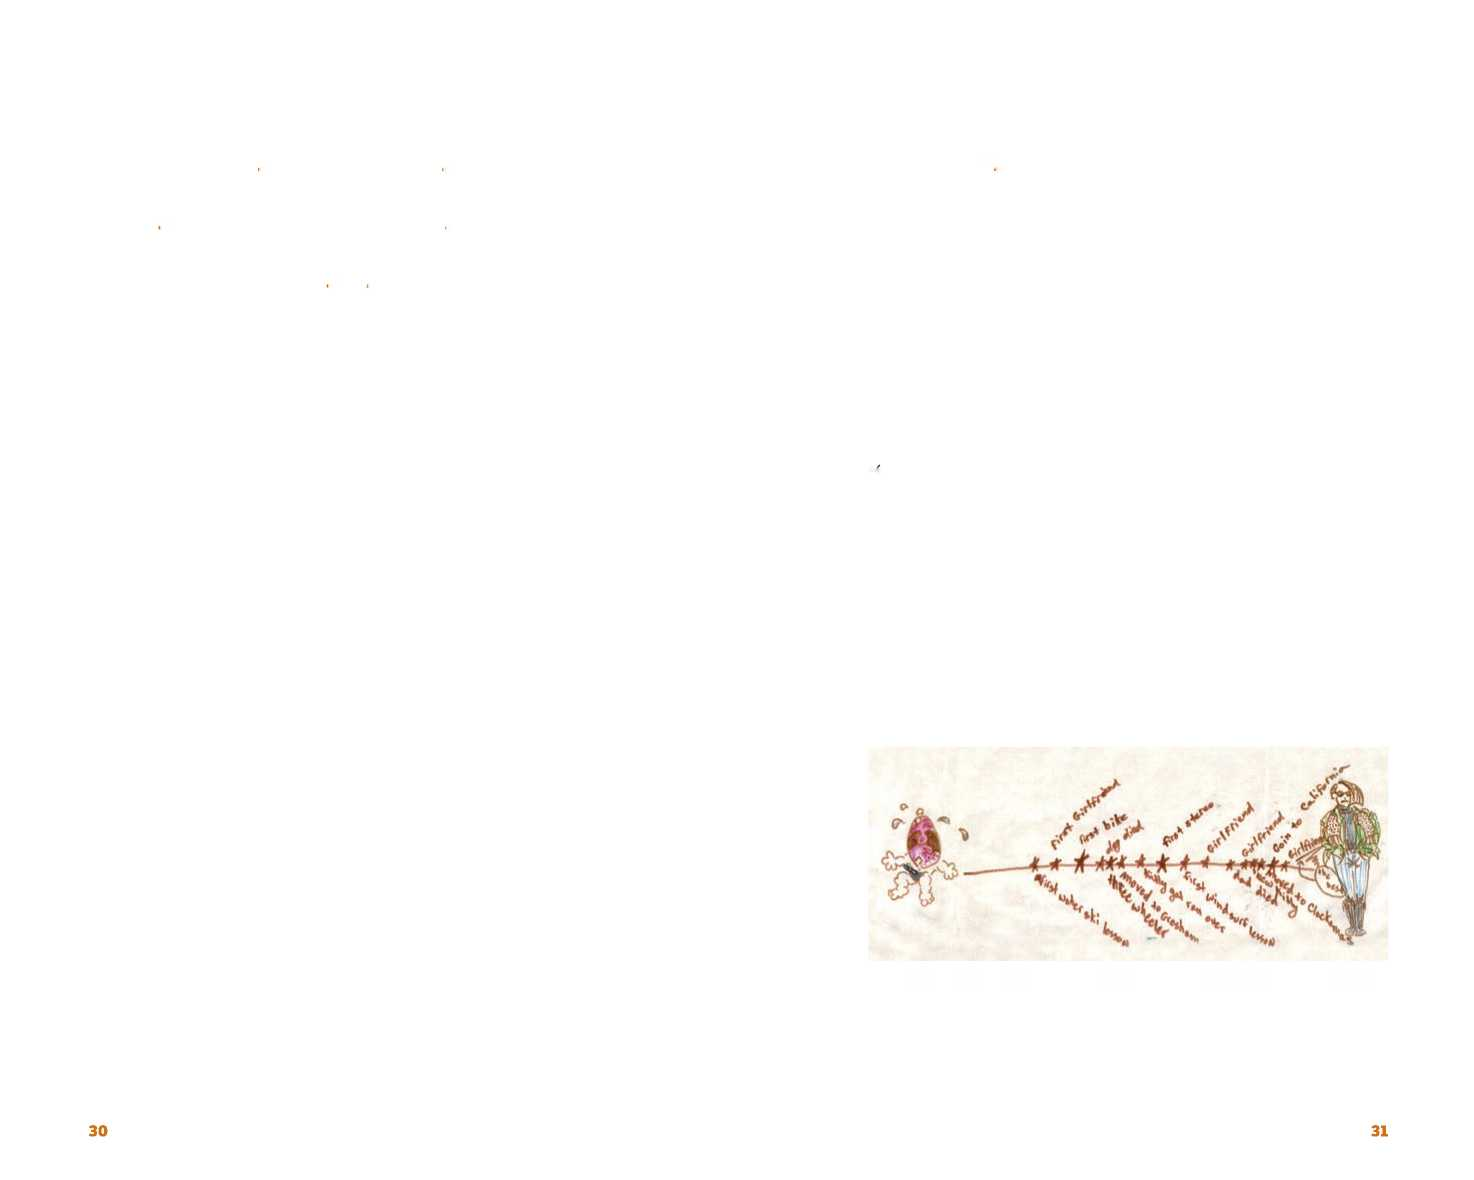 First Girlfriend
first bike
dog died
first stereo
Girlfriend
Girlfriend
Goin to California
Girlfriend
the best
first water ski lesson
three wheeler
moved to Gresham
kitty got ran over
first windsurf lesson
dad died
new kitty
moved to Clackamas
30
31